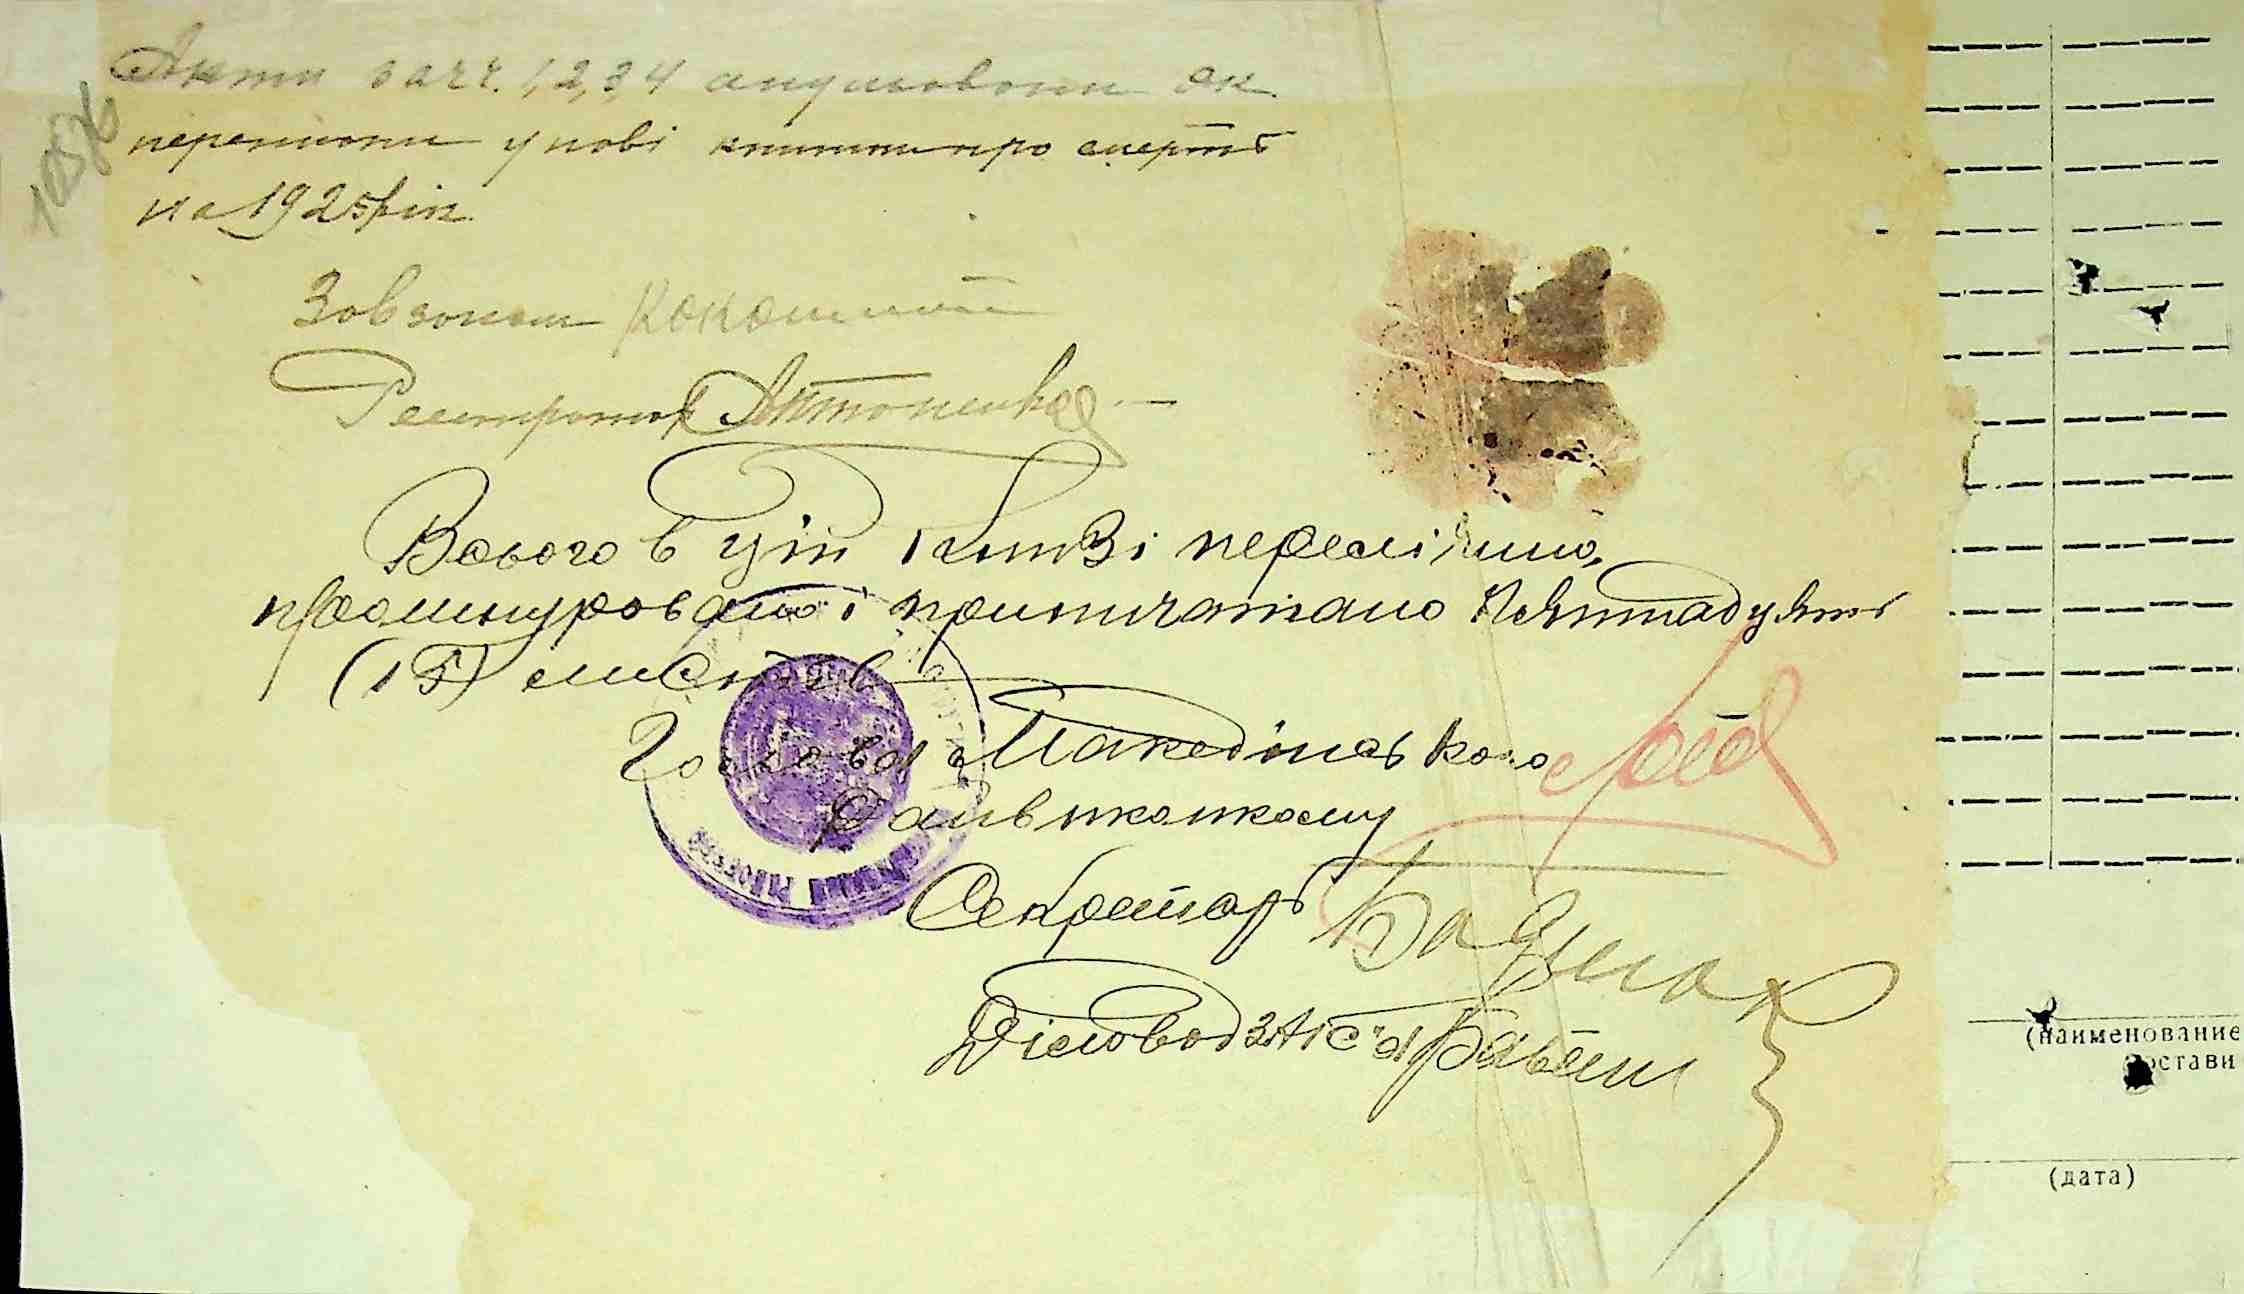 Акти за чч. 1, 2, 3, 4 анульовани як
перенисани у нові книжки про смерть
на 1925 рік.
10576
Завзагсом
Реєстратор Антоненко
Всього в цій книзі перелічино,
прошнуровано і припичатано Пʼятнадцять
(15) листків
Голова Македінського
Райвиконкому
Секретарь
Діловод ЗАГС'а
(наименование
состави
(дата)